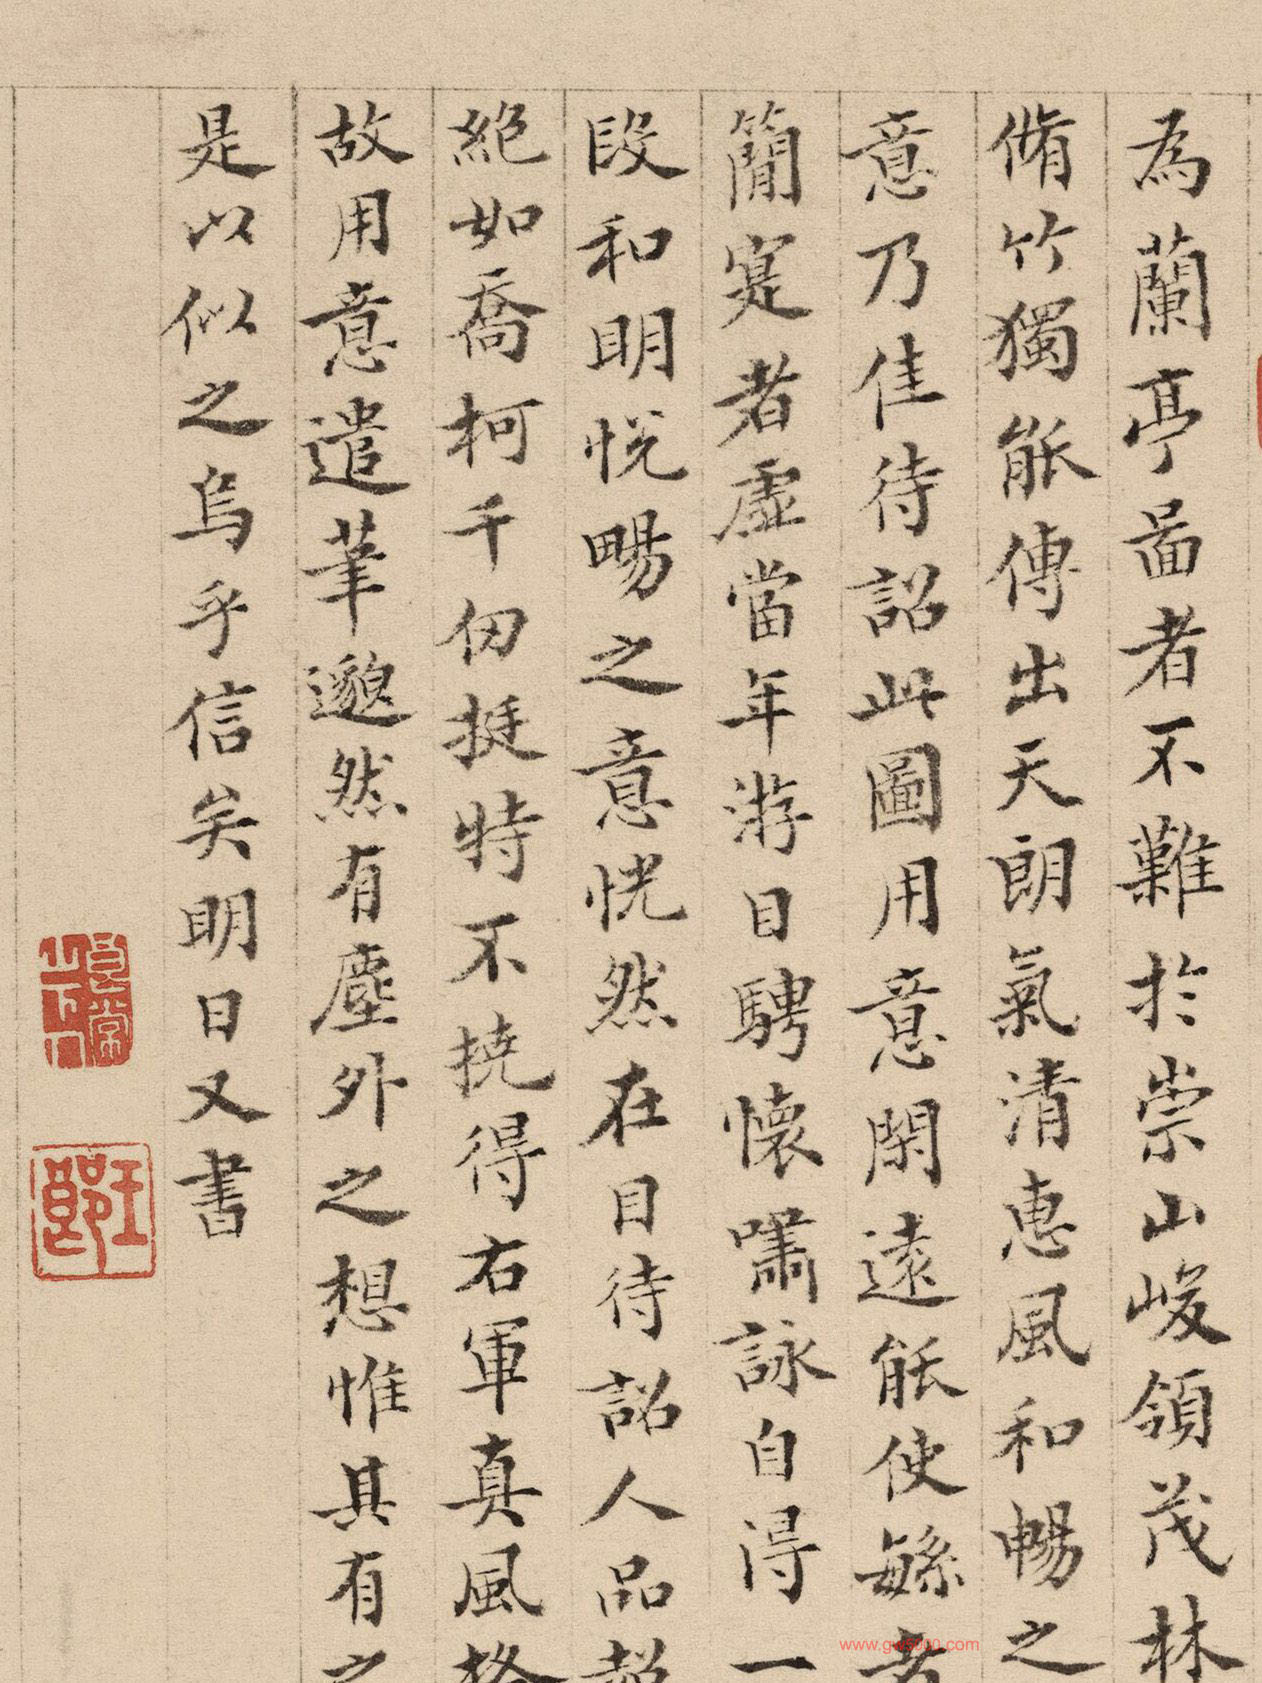 為蘭亭啚者不難於崇山峻領茂林
脩竹獨能傳出天朗氣清惠風和暢之
意乃佳待詔此圖用意閑遠能使繇者
簡寔者虛當年游目騁懷嘯詠自得一
段和明悅暢之意恍然在目待詔人品超
絕如喬柯千仞挺特不撓得右軍真風格
故用意遣筆邈然有塵外之想惟具有之
是以似之烏乎信矣明日又書
www.gw5000.com